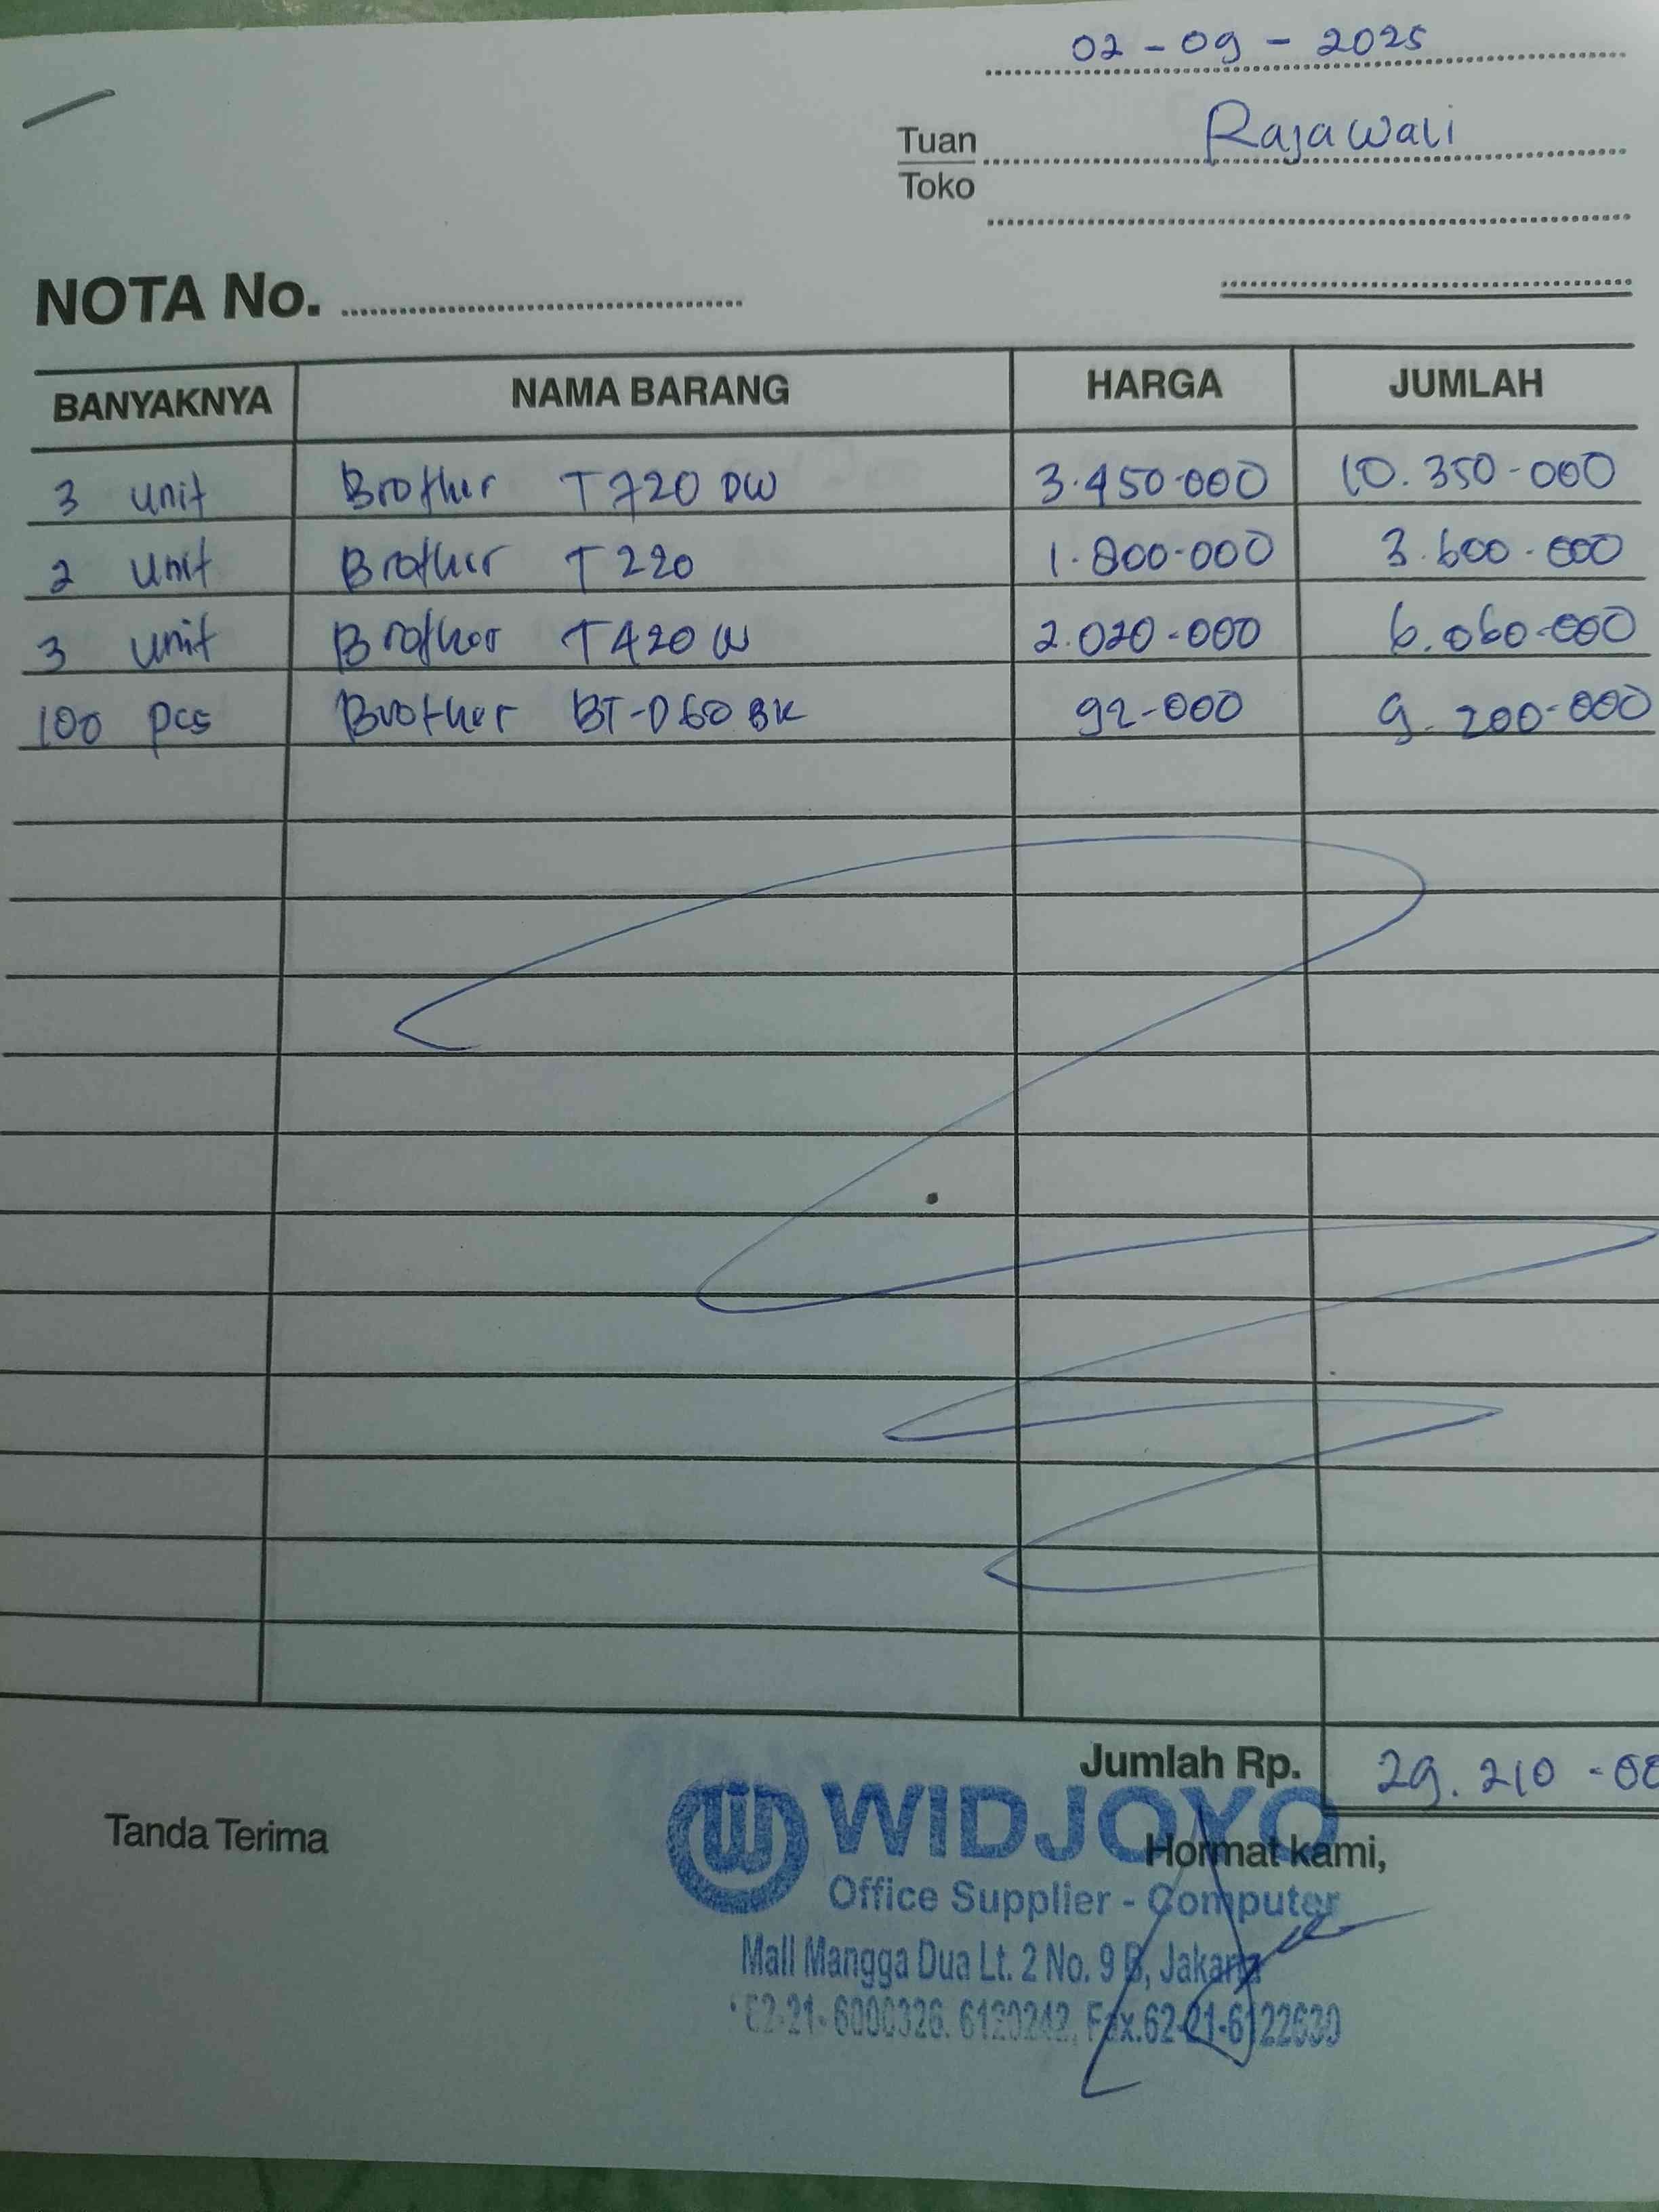 02-09-2025
Tuan Rajawali
Toko
NOTA No.
BANYAKNYA NAMA BARANG HARGA JUMLAH
3 unit Brother T720 DW 3.450.000 10.350-000
2 unit Brother T220 1.800.000 3.600.000
3 unit Brother T420 W 2.020-000 6.060-000
100 pcs Brother BT-D60BK 92-000 9.200-000
Jumlah Rp. 29.210-00
Tanda Terima
WIDJOYO
Hormat kami,
Office Supplier - Computer
Mall Mangga Dua Lt. 2 No. 9 B, Jakarta
62-21-6000326. 6120242, Fax.62-21-6122630